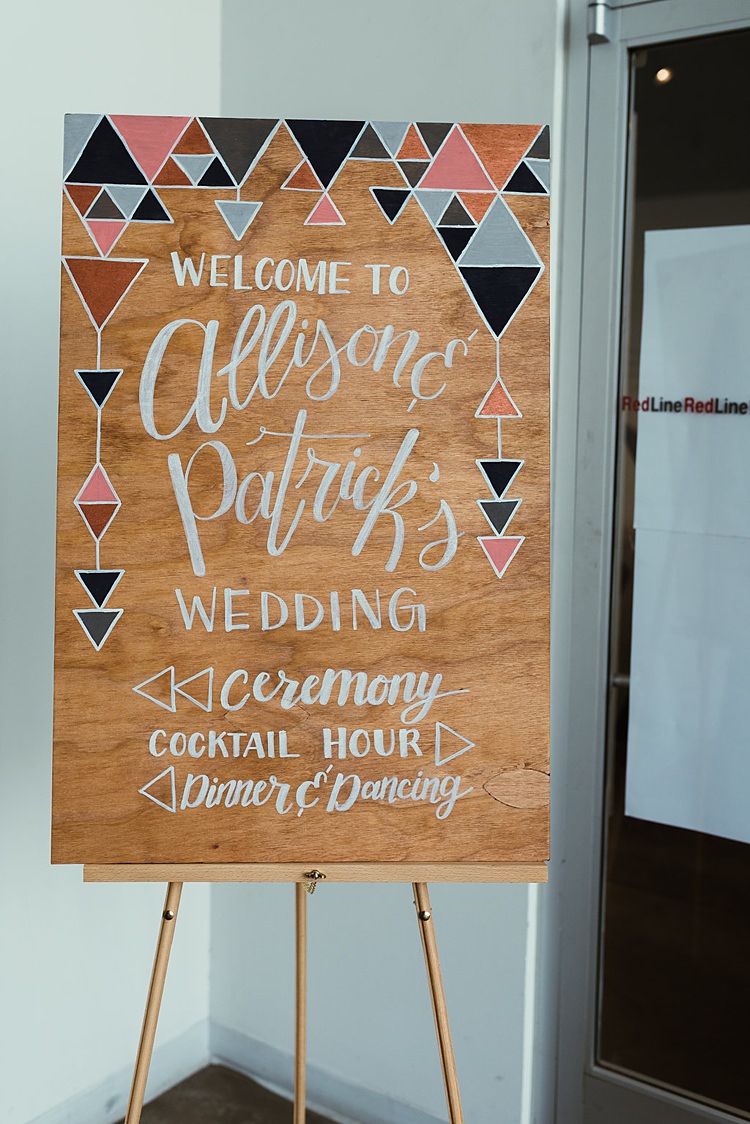 WELCOME TO
Allison &
Patrick's
WEDDING
Ceremony
COCKTAIL HOUR
Dinner & Dancing
RedLineRedLine